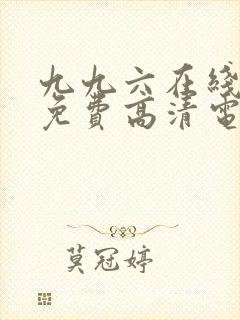 九九六在线
免费高清电
莫冠婷